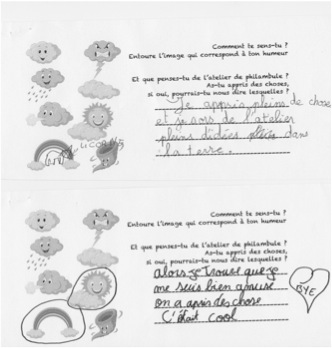 Comment te sens-tu ?
Entoure l'image qui correspond à ton humeur
Et que penses-tu de l'atelier de philambule ?
As-tu appris des choses,
si oui, pourrais-tu nous dire lesquelles ?
Je appris plein de chose
et je sors de l'atelier
pleins didées dans
la terre.
Licorne
Comment te sens-tu ?
Entoure l'image qui correspond à ton humeur
Et que penses-tu de l'atelier de philambule ?
As-tu appris des choses,
si oui, pourrais-tu nous dire lesquelles ?
alors je trouve que je
me suis bien amuse
on a apris des chose
C'était cool
BYE